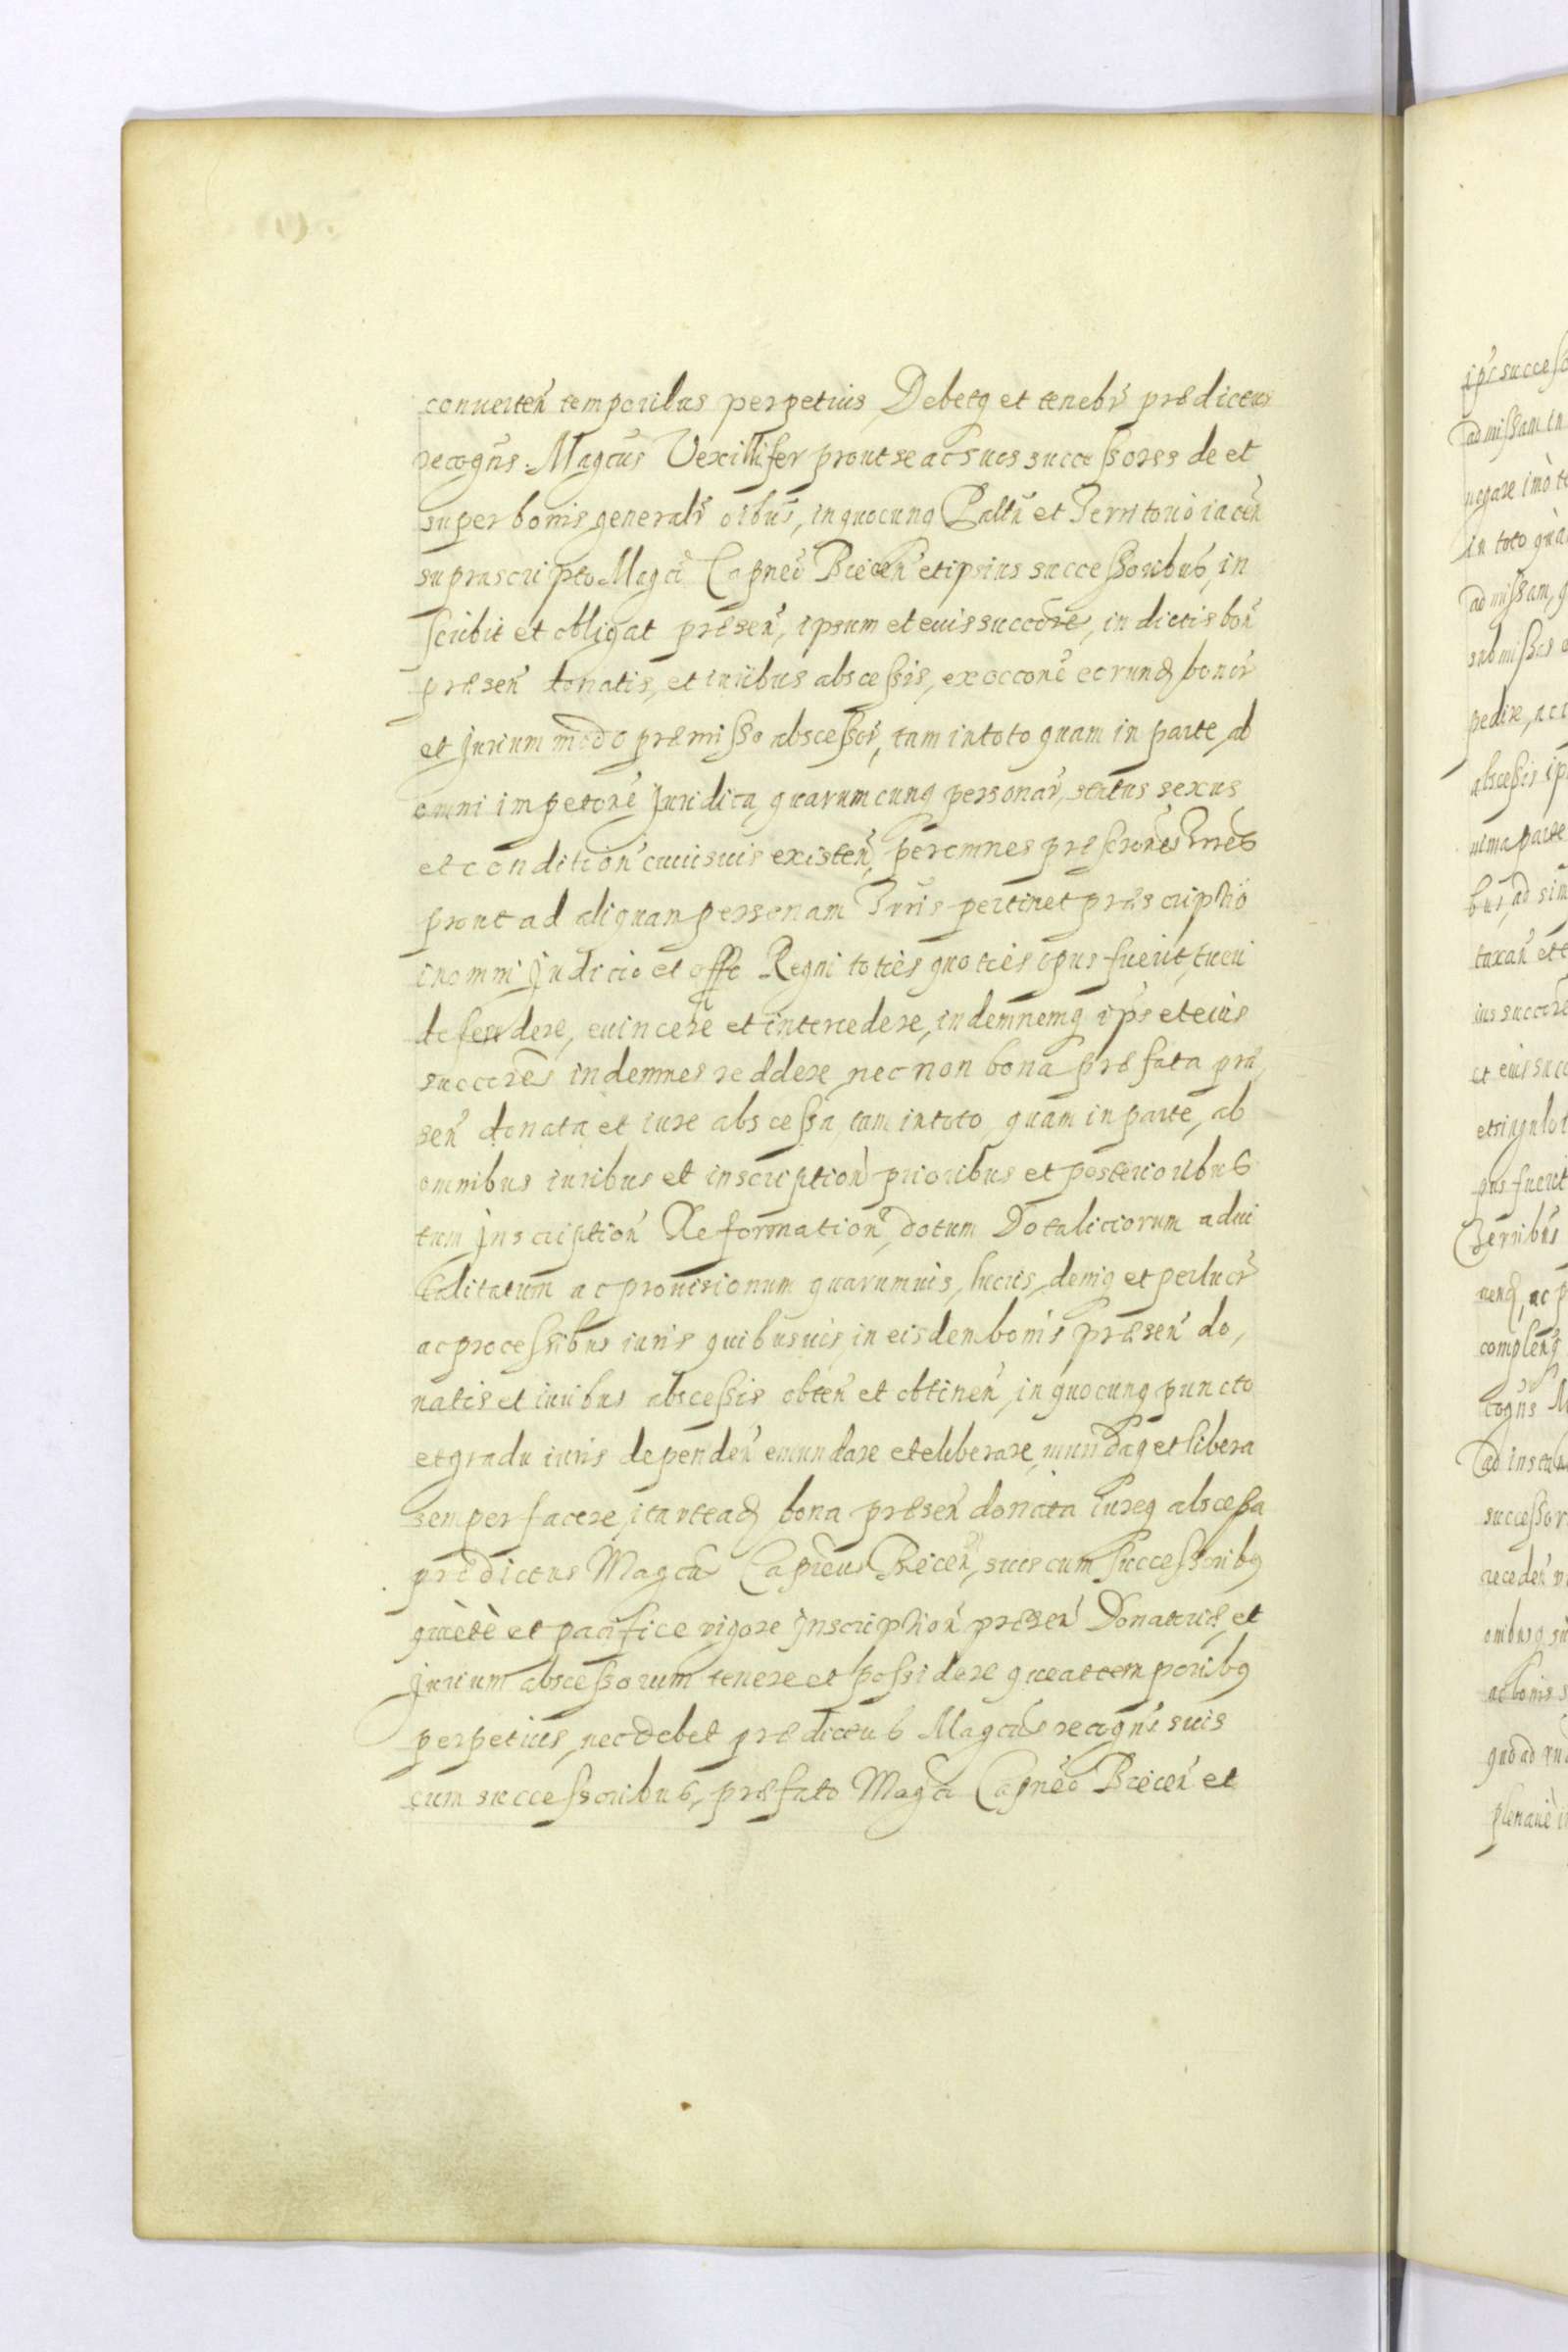 conuerteñ temporibus perpetuis, Debetq et tenebr̃ prædictus
recogñs Magcus Vexillifer prout se ac suos successores de et
super bonis generalr̃ oibus, in quocunq Palltũ et Territorio iaceñ
suprascripto Magco Capneo Brecen̄ et ipsius successoribus, in
scribit et obligat præseñ, ipsum et eius succore, in dictis boñ
præseñ donatis, et iuribus abscessis, ex occone eorund bonor̃
et Jurium modo præmisso abscessor̃, tam in toto quam in parte, ab
omni impetone Juridica, quarumcunq personar̃, status sexus
et condition̄ cuiusuis existeñ, per omnes præscrones Trres
prout ad aliquam personam Juris pertinet præscriptio
in omni Judicio et offo Regni toties quoties opus fuerit, tueri
defendere, euincere et intercedere, indemnemq ips̃ et eius
succores indemnes reddere, nec non bona præfata præ,
señ donata et iure abscessa, tam in toto quam in parte, ab
omnibus iuribus et inscription̄ prioribus et posterioribus
tum Inscription̄ Reformation̄, dotum Dotaliciorum adui
talitatum ac prouisionum quarumuis, lucris, deniq et perlucr̃
ac processibus iuris quibusuis, in eisdem bonis præseñ do,
natis et iuribus abscessis obteñ et obtineñ, in quocunq puncto
et gradu iuris dependeñ emundare et eliberare, mundaq et libera
semper facere, ita ut ead bona præseñ donata iureq abscessa
prædictus Magcus Capneus Brecen̄, suis cum successoribq
quiete et pacifice vigore Inscription̄ præseñ Donatoriæ, et
Jurium abscessorum tenere et possidere queat temporibq
perpetuis, nec debet prædictus Magcus recogñs suis
cum successoribus, præfato Magco Capneo Brecen̄ et